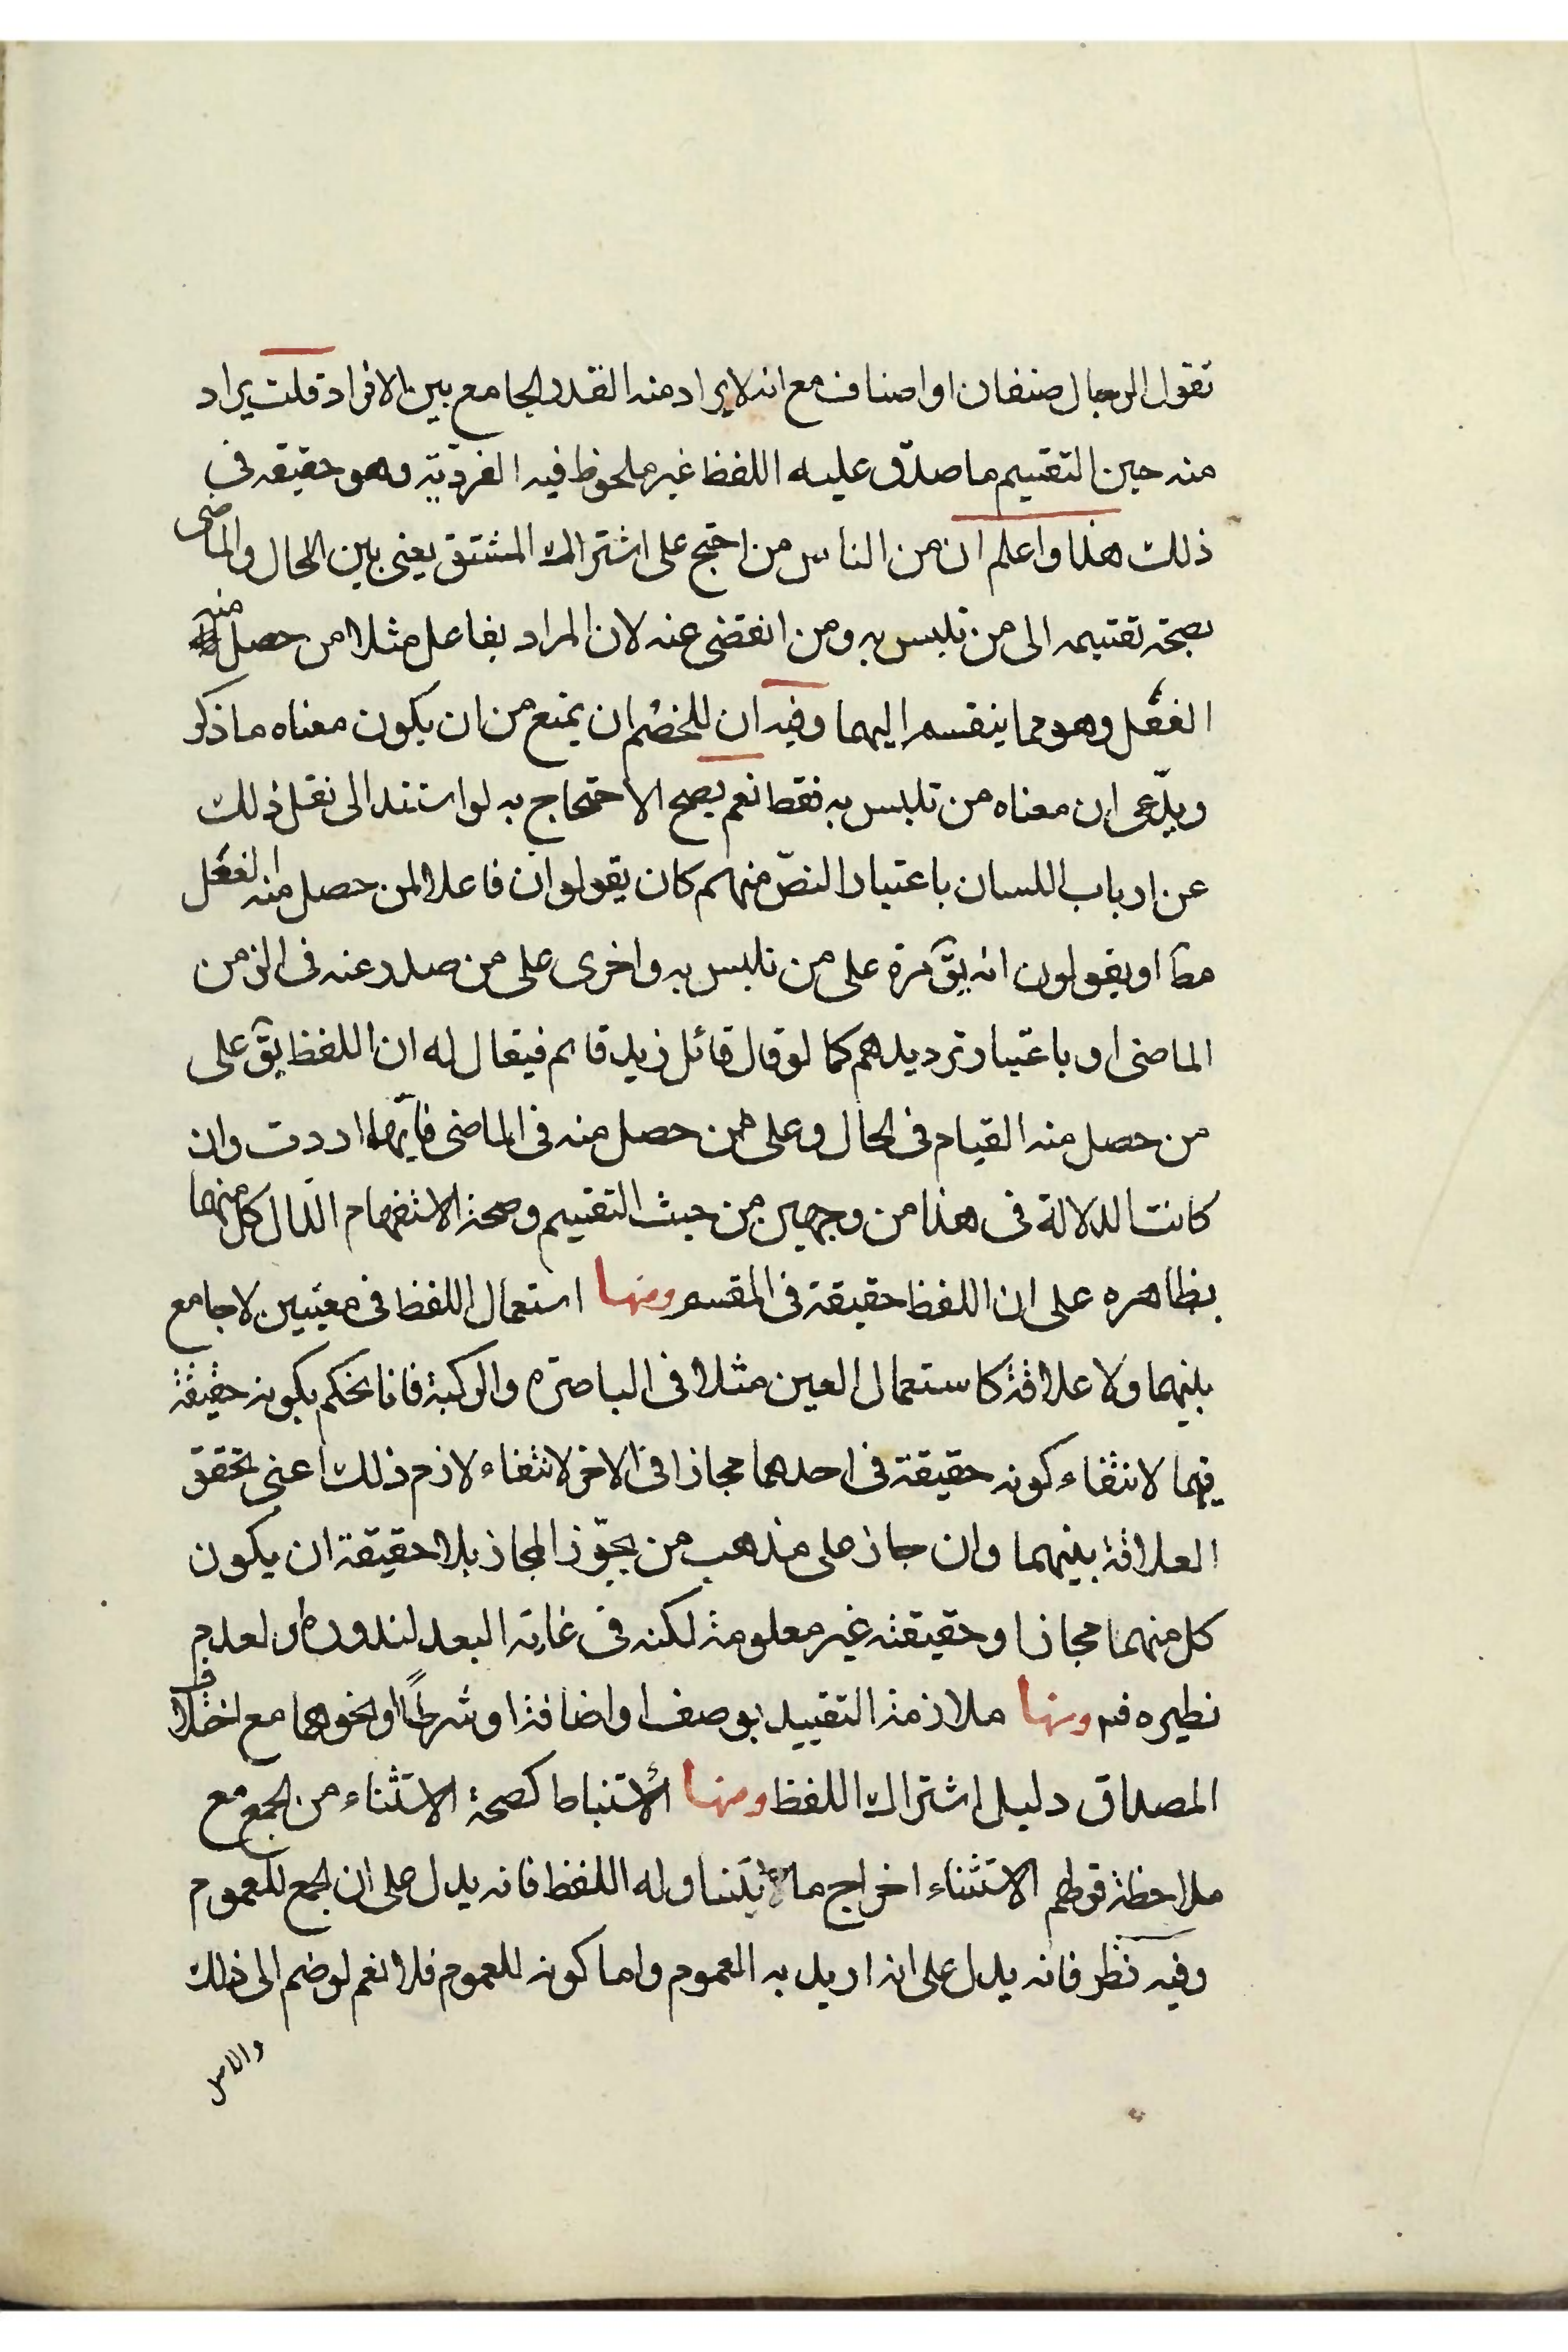 تقول الرجال صنفان او اصناف مع انه لا يراد منه القدر الجامع بين الافراد قلت يراد
منه حين التقسيم ما صدق عليه اللفظ غير ملحوظ فيه الفردية وهو حقيقة في
ذلك هذا واعلم ان من الناس من احتج على اشتراك المشتق يعني بين الحال والماضى
بصحة تقسيمه الى من تلبس به ومن انقضى عنه لان المراد بفاعل مثلا من حصل منه
الفعل وهو مما ينقسم اليهما وفيه ان للخصم ان يمنع من ان يكون معناه ما ذكر
ويدّعى ان معناه من تلبس به فقط نعم يصح الاحتجاج به لو استند الى نقل ذلك
عن ارباب اللسان باعتبار النصّ منهم كان يقولوا ان فاعلا لمن حصل منه الفعل
مطا او يقولون انه يق مرة على من تلبس به واخرى على من صدر عنه فى الزمن
الماضى او باعتبار ترديدهم كما لو قال قائل زيد قائم فيقال له ان اللفظ يق على
من حصل منه القيام فى الحال وعلى من حصل منه فى الماضى فايهما اردت وان
كانت الدلالة فى هذا من وجهين من حيث التقسيم وصحة الاستفهام الدال كل منهما
بظاهره على ان اللفظ حقيقة فى المقسم ومنها استعمال اللفظ فى معنيين لا جامع
بينهما ولا علاقة كاستعمال العين مثلا فى الباصرة والركبة فانا نحكم بكونه حقيقة
فيهما لانتفاء كونه حقيقة فى احدهما مجازا فى الاخر لانتفاء لازم ذلك اعنى تحقق
العلاقة بينهما وان جاز على مذهب من يجوّز المجاز بلا حقيقة ان يكون
كل منهما مجازا وحقيقته غير معلومة لكنه فى غاية البعد لندوره او لعدم
نظيره فم ومنها ملازمة التقييد بوصف او اضافة او شرط او نحوهما مع اختلاف
المصداق دليل اشتراك اللفظ ومنها الاستنباط كصحة الاستثناء من الجمع مع
ملاحظة قولهم الاستثناء اخراج ما يتناوله اللفظ فانه يدل على ان الجمع للعموم
وفيه نظر فانه يدل على انه اريد به العموم واما كونه للعموم فلا نعم لو ضم الى ذلك